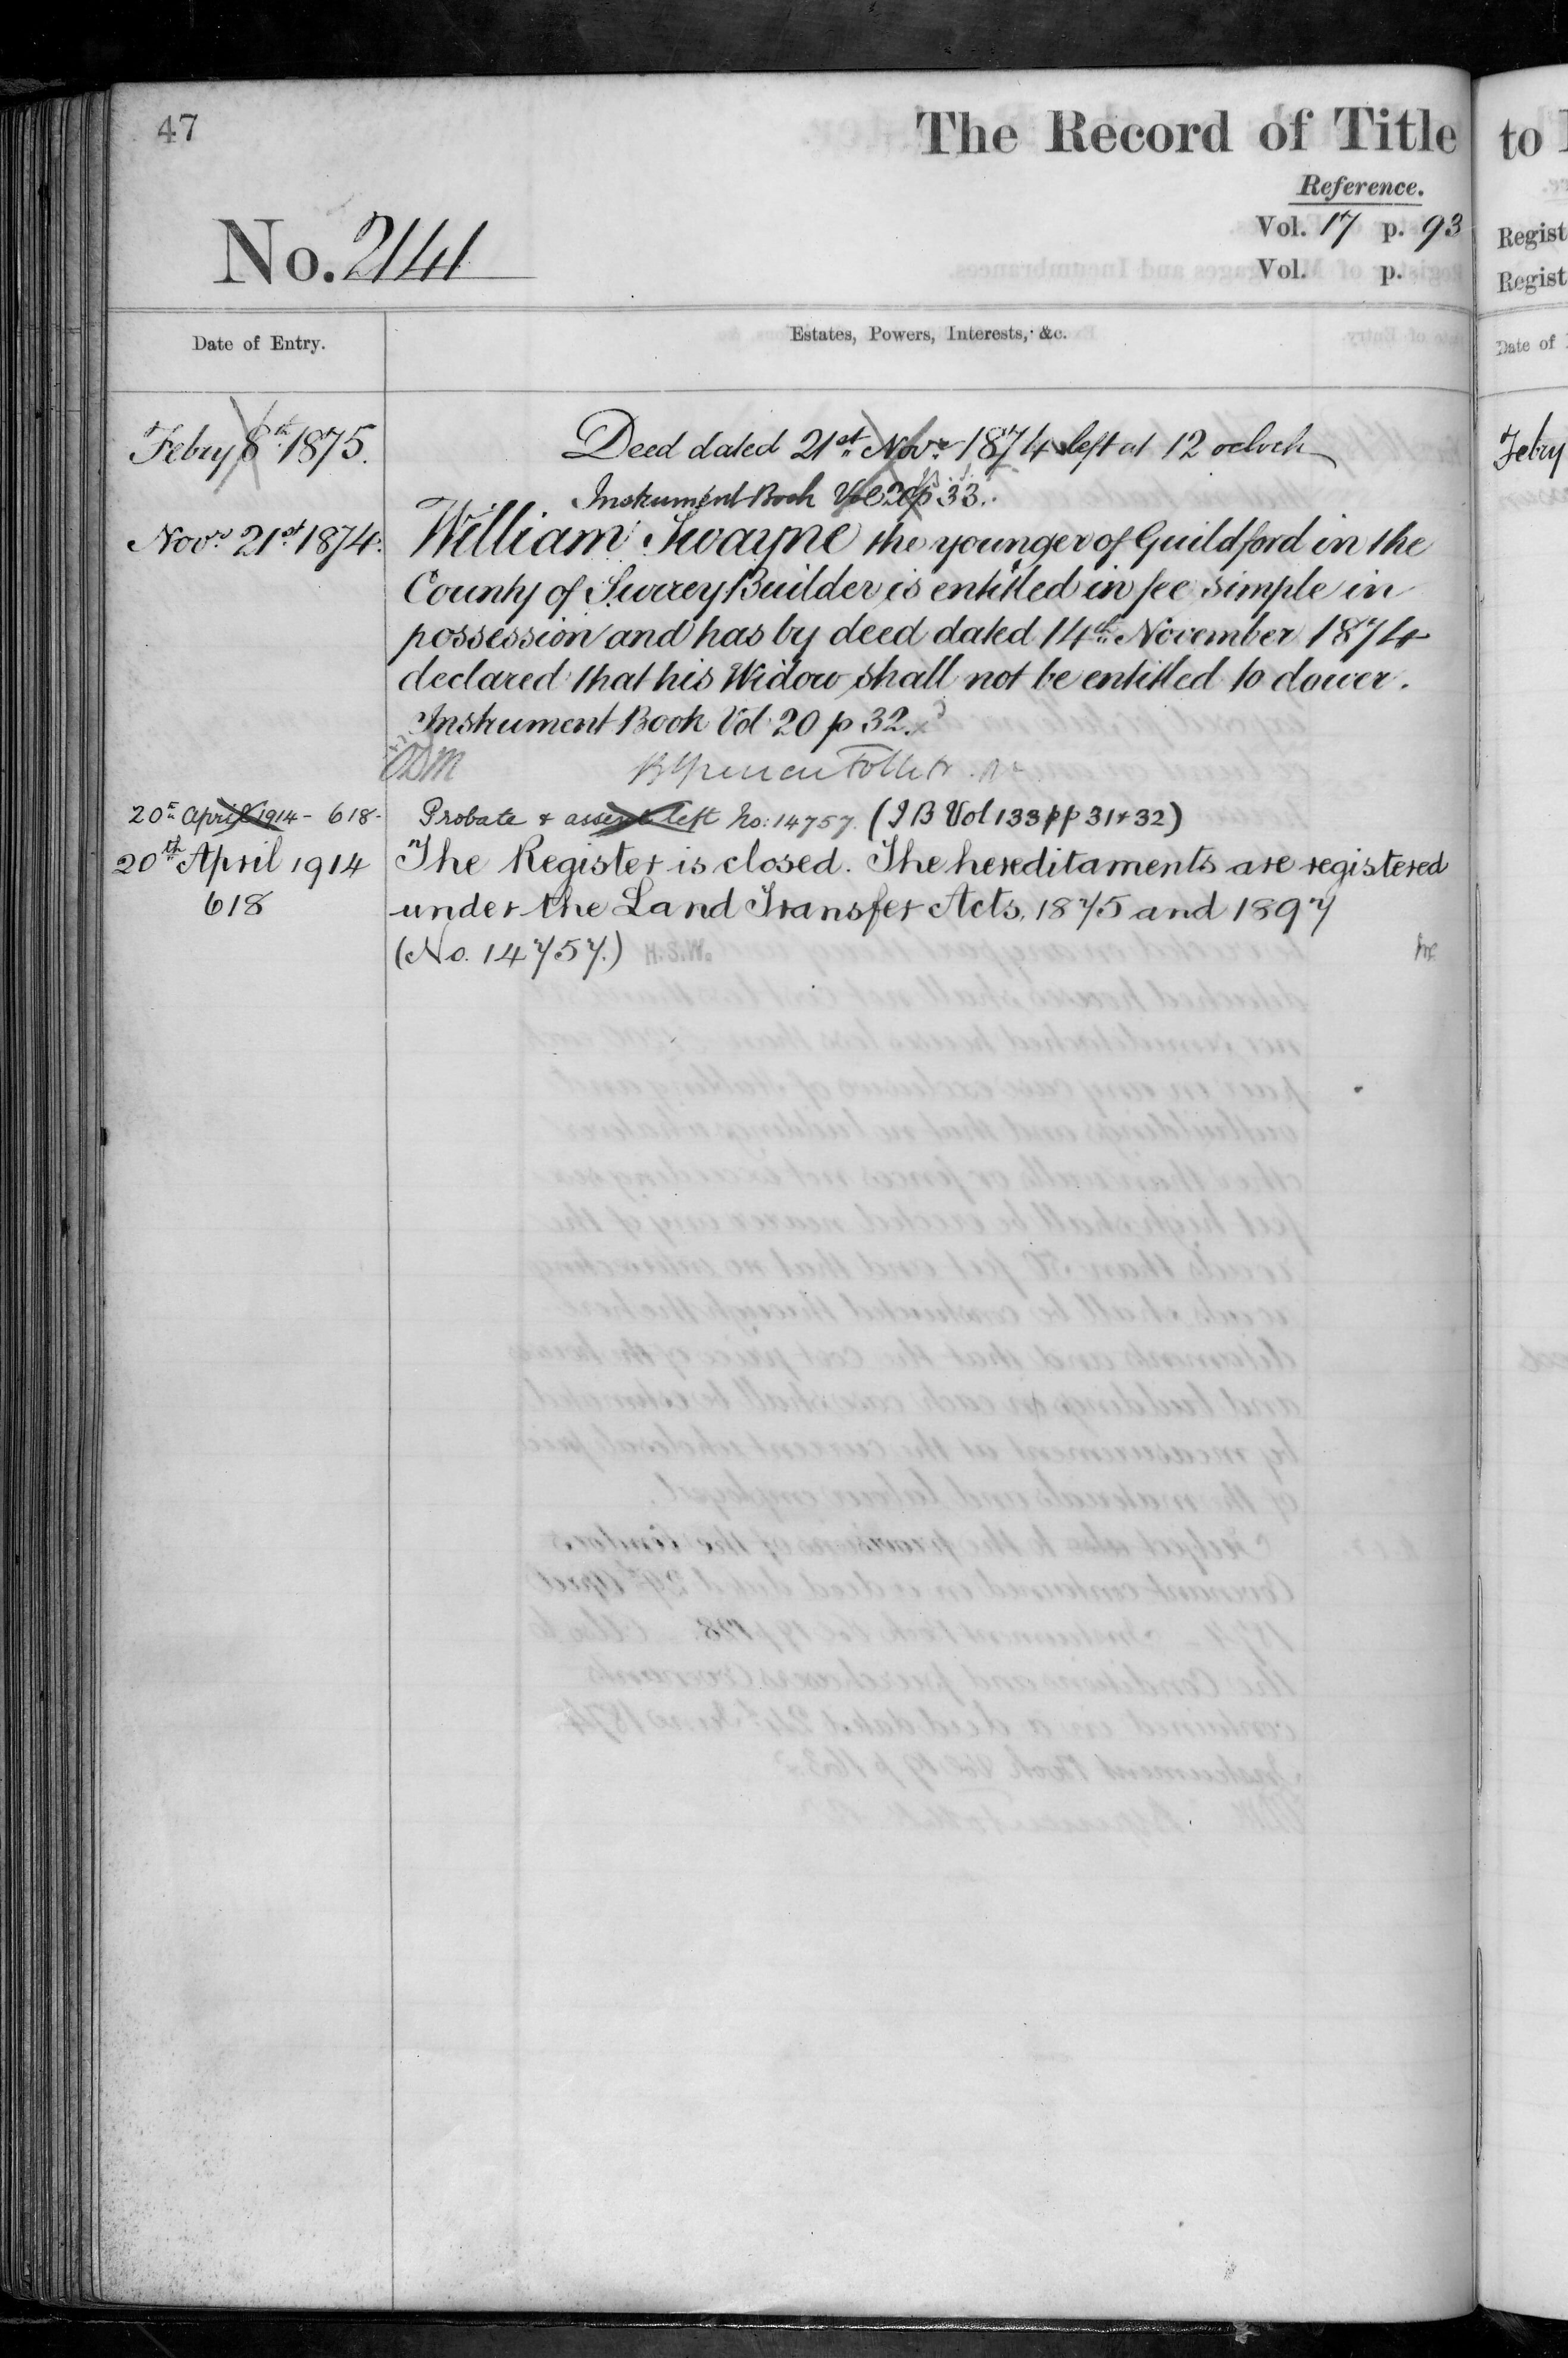 47
The Record of Title
Reference.
Vol. 17 p. 93
No. 2141
Vol. p.
Date of Entry.
Estates, Powers, Interests, &c.
Febry 8th 1875.
Deed dated 21st Novr 1874 left at 12 oclock
Instrument Book Vol 20 p 33.
Novr 21st 1874.
William Swayne the younger of Guildford in the
County of Surrey Builder is entitled in fee simple in
possession and has by deed dated 14th November 1874
declared that his Widow shall not be entitled to dower.
Instrument Book Vol 20 p 32.
20th April 1914 - 618-
Probate & assent left No: 14757. (I B Vol 133 pp 31 + 32)
20th April 1914
618
The Register is closed. The hereditaments are registered
under the Land Transfer Acts, 1875 and 1897
(No. 14757.) H.S.W.
to
Regist
Regist
Date of
Febry